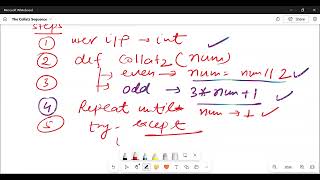 Microsoft Whiteboard
The Collatz Sequence
steps
① user i/p → int ✓
② def collatz (num)
③ → even → num = num // 2 ✓
→ odd → 3*num+1 ✓
④ Repeat until num → 1 ✓
⑤ try - except